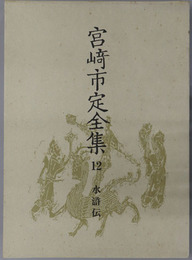 宮﨑市定全集
12
水滸伝